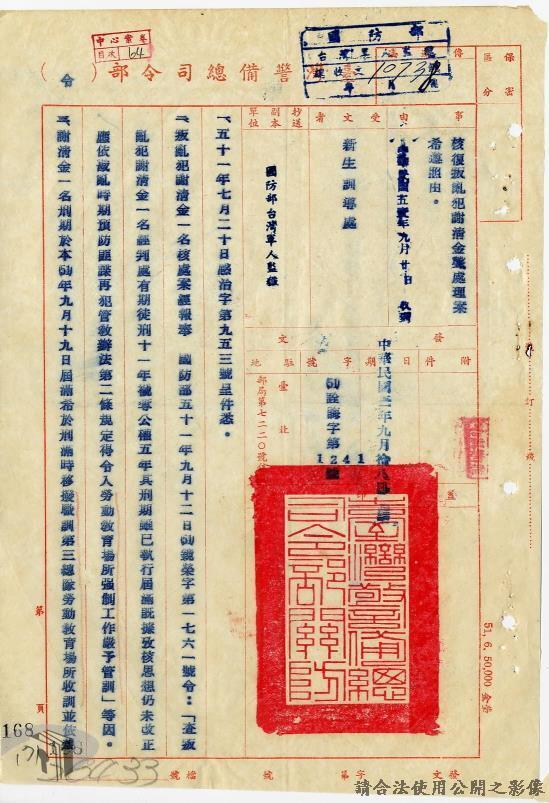 中心案卷
目次 64
國防部
台灣軍人監獄
1073
臺灣警備總司令部(令)
保密區分
事由
核復叛亂犯謝清金駿處理案希遵照由。
受文者
新生訓導處
抄送副本單位
國防部台灣軍人監獄
發文
附件
日期
字號
駐地
中華民國五十一年九月拾八日
(51)詮晦字第1241號
臺北郵局第七二二〇號信箱
臺灣警備總司令部關防
一、五十一年七月二十日感治字第九五三號呈件悉。
二、叛亂犯謝清金一名核處案經報奉 國防部五十一年九月十二日(51)號榮字第一七六一號令:「查叛
亂犯謝清金一名經判處有期徒刑十一年褫奪公權五年其刑期雖已執行屆滿既據攷核思想仍未改正
應依叛亂時期預防匪諜再犯管教辦法第二條規定得令入勞動教育場所強制工作嚴予管訓」等因。
三、謝清金一名刑期於本(51)年九月十九日屆滿希於刑滿時移撥職訓第三總隊勞動教育場所收訓並依
51. 6. 50,000
訂
線
第 頁
168
檔號
發文 字第 號
請合法使用公開之影像